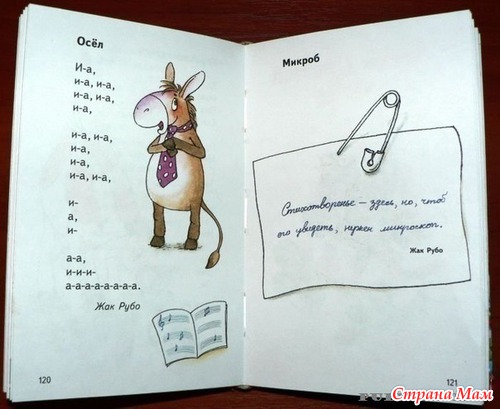 Осёл
И-а,
и-а, и-а,
и-а, и-а,
и-а,
и-а, и-а,
и-а,
и-а,
и-а, и-а,
и-
а,
и-
а-а,
и-и-и-
а-а-а-а-а-а-а-а.
Жак Рубо
120
Микроб
Стихотворенье – здесь, но, чтоб
его увидеть, нужен микроскоп.
Жак Рубо
121
Страна Мам